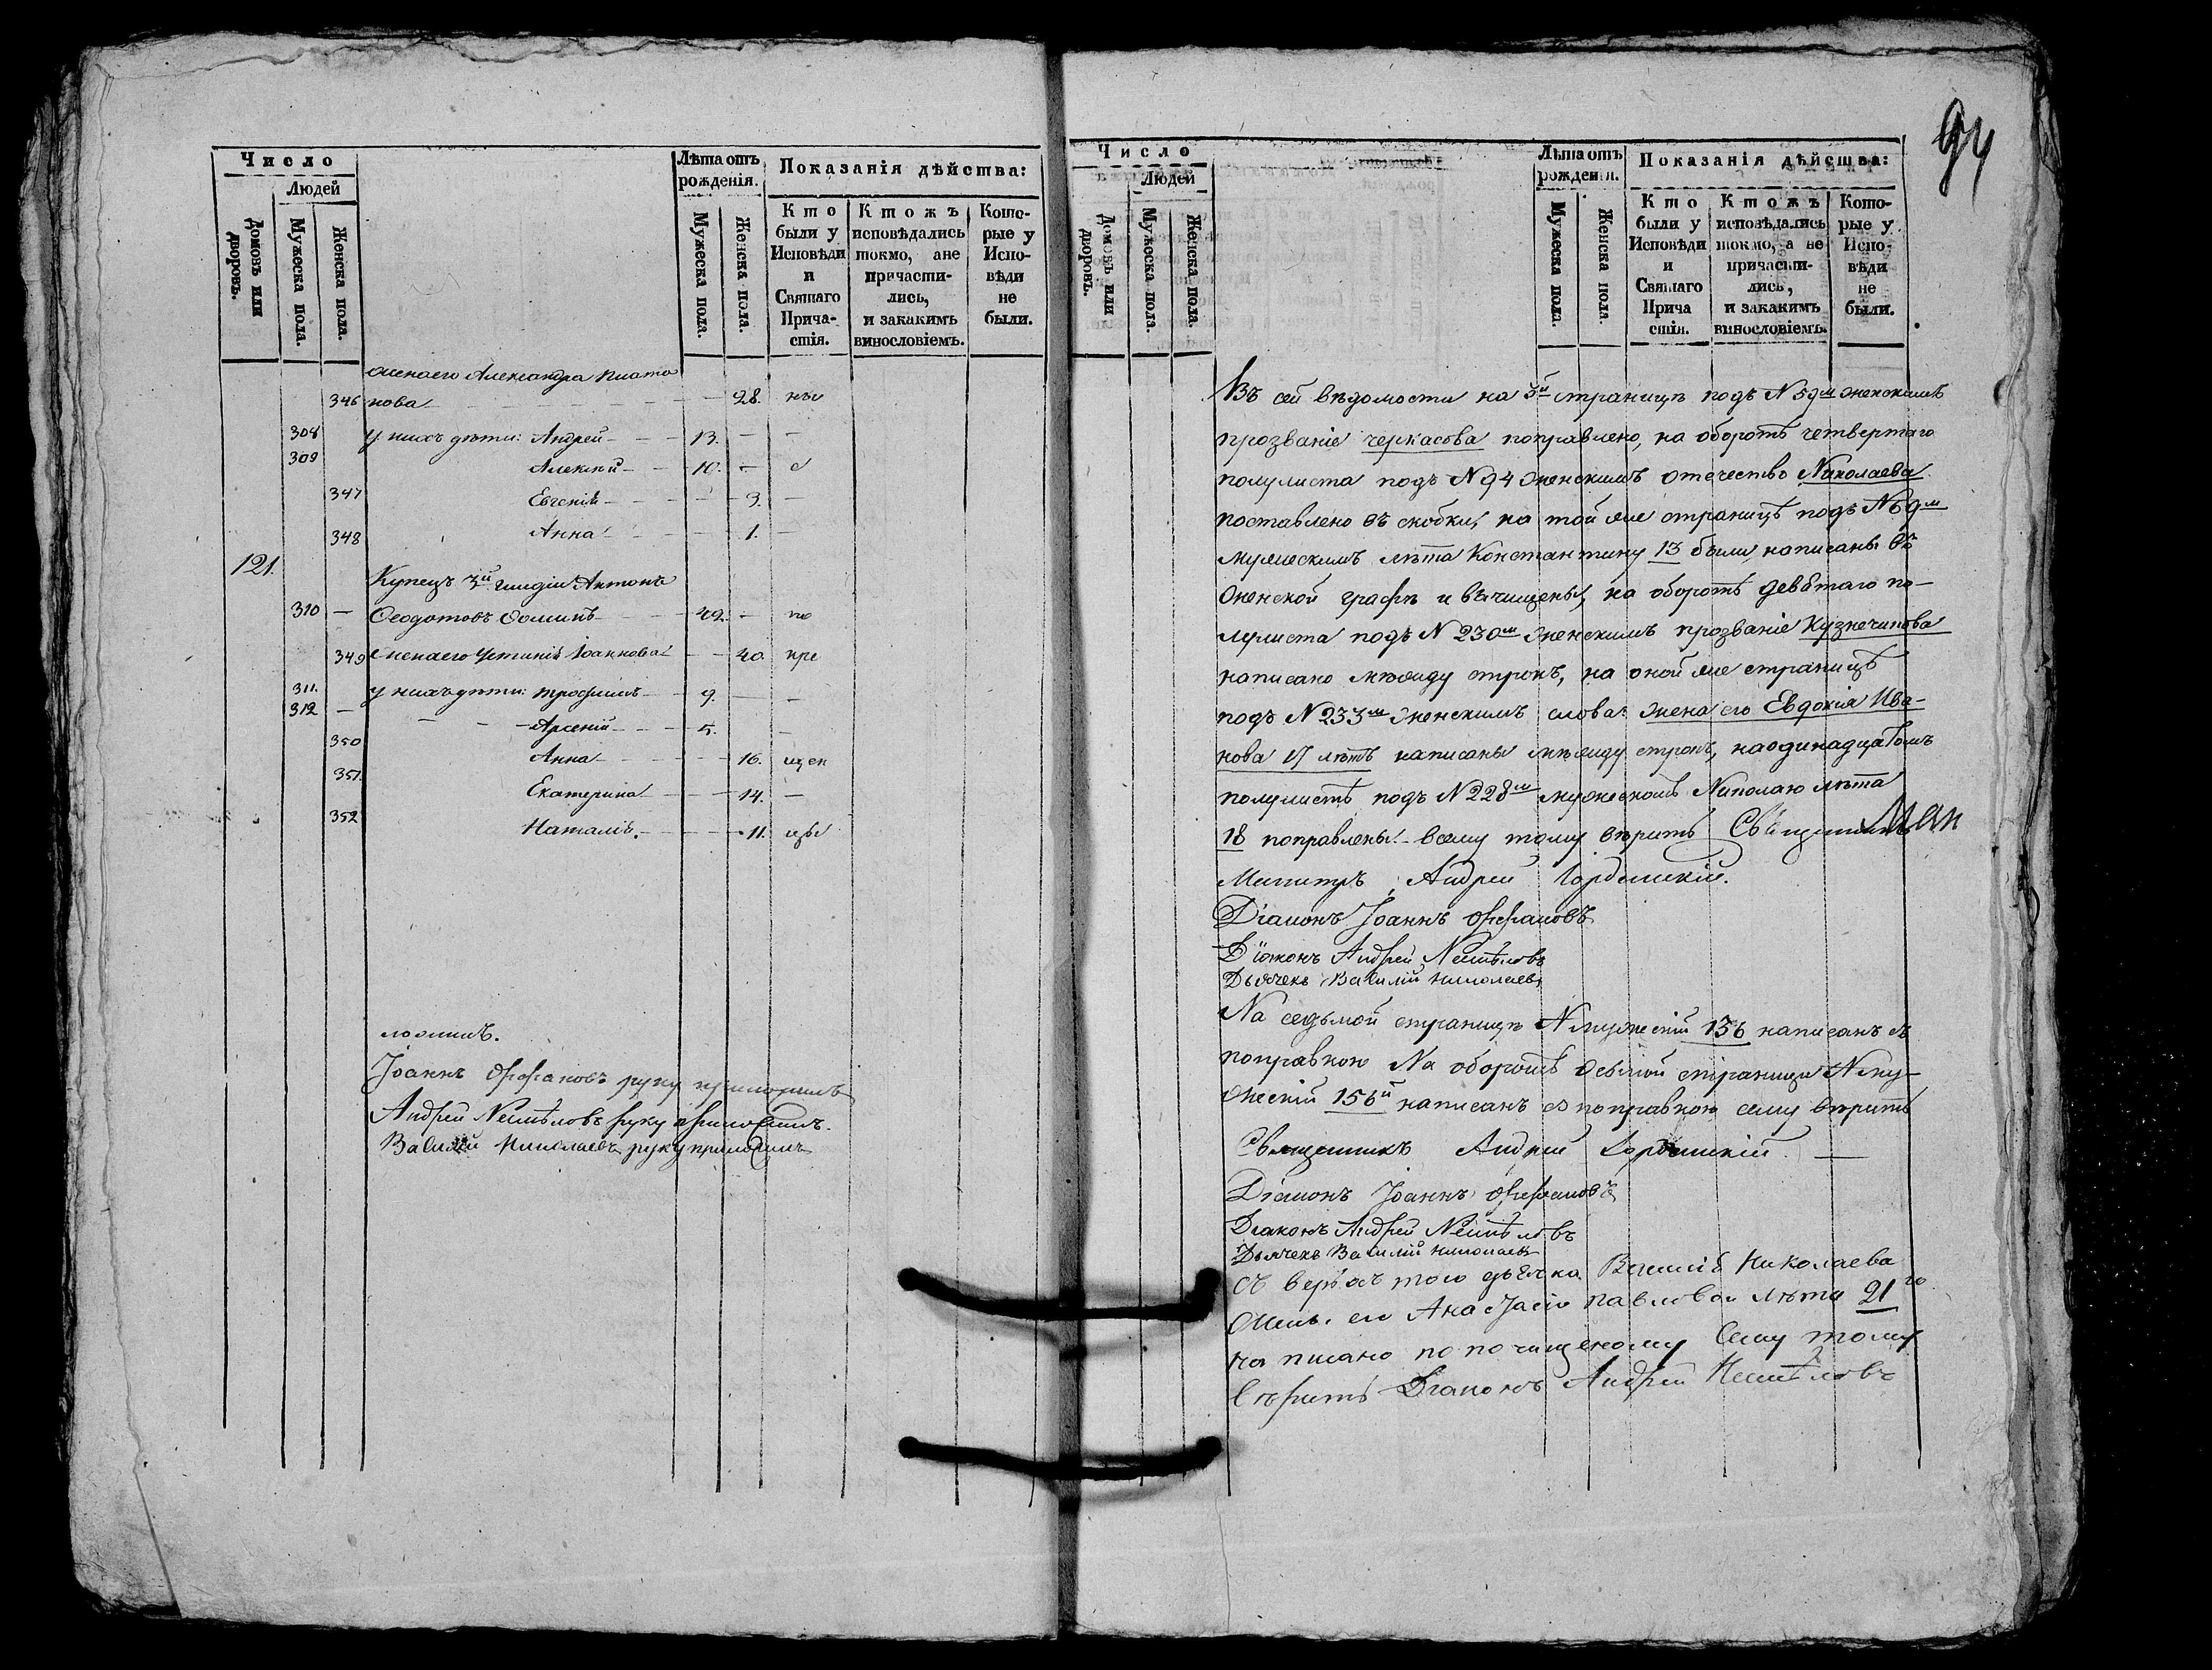 Число
Людей
Домовъ или дворовъ.
Мужеска пола.
Женска пола.
Лѣта отъ рожденія.
Мужеска пола.
Женска пола.
Показанія дѣйства:
Кто были у Исповѣди и Святаго Прича-стія.
Ктожъ исповѣдались токмо, ане причасти-лись, и закакимъ винословіемъ.
Кото-рые у Испо-вѣди не были.
жена его Александра Плато
346 нова 28.
308 у нихъ дѣти: Андрей 13.
309 Алексѣй 10.
347 Евгенія 3.
348 Анна 1.
121. Купецъ 3й гилдіи Антонъ
310 Ѳедотовъ Ѳоминъ 42. по
349 жена его Устинія Іоаннова 40. кре
311. у нихъ дѣти: Трофимъ 9.
312 Арсеній 5.
350 Анна 16. щен
351. Екатерина 14.
352 Наталія. 11. цы
ложилъ.
Іоаннъ руку приложилъ
Андрей руку приложилъ.
Василій Николаевъ руку приложилъ
94
Число
Людей
Домовъ или дворовъ.
Мужеска пола.
Женска пола.
Лѣта отъ рожденія.
Мужеска пола.
Женска пола.
Показанія дѣйства:
Кто были у Исповѣди и Святаго Прича стія.
Ктожъ исповѣдались токмо, а не причасти-лись, и закакимъ винословіемъ.
Кото-рые у Испо-вѣди не были.
Въ сей вѣдомости на 3й страницѣ подъ N 59м женскимъ
прозваніе черкасова поправлено, на оборотѣ четвертаго
полулиста подъ N 94 женскимъ отечество Николаева
поставлено въ скобки, на той же страницѣ подъ N 69м
мужескимъ лѣта Константину 13 были написаны въ
женской графѣ и вычищены, на оборотѣ девятаго по-
лулиста подъ N 230м женскимъ прозваніе Кузнечикова
написано между строкъ, на оной же страницѣ
подъ N 233м женскимъ слова: жена его Евдокія Ива-
нова 17 лѣтъ написаны между строкъ, на одинадцатомъ
полулистѣ подъ N 228м мужескомъ Николаю лѣта
18 поправлены. всему тому вѣрить Священникъ Маг
Андрей
Діаконъ Іоаннъ
Діаконъ Андрей
Дьячекъ Василій Николаевъ
На седьмой страницѣ N мужескій 136 написанъ съ
поправкою На оборотѣ осьмой страницы N му-
жескій 156й написанъ съ поправкою сему вѣрить
Священникъ Андрей
Діаконъ Іоаннъ
Діаконъ Андрей
Дьячекъ Василій Николаевъ
Съ верхъ того дьячка Василія Николаева
жены его Анастасіи Павловой лѣта 21го
написано по почищеному Сему тому
вѣрить Діаконъ Андрей